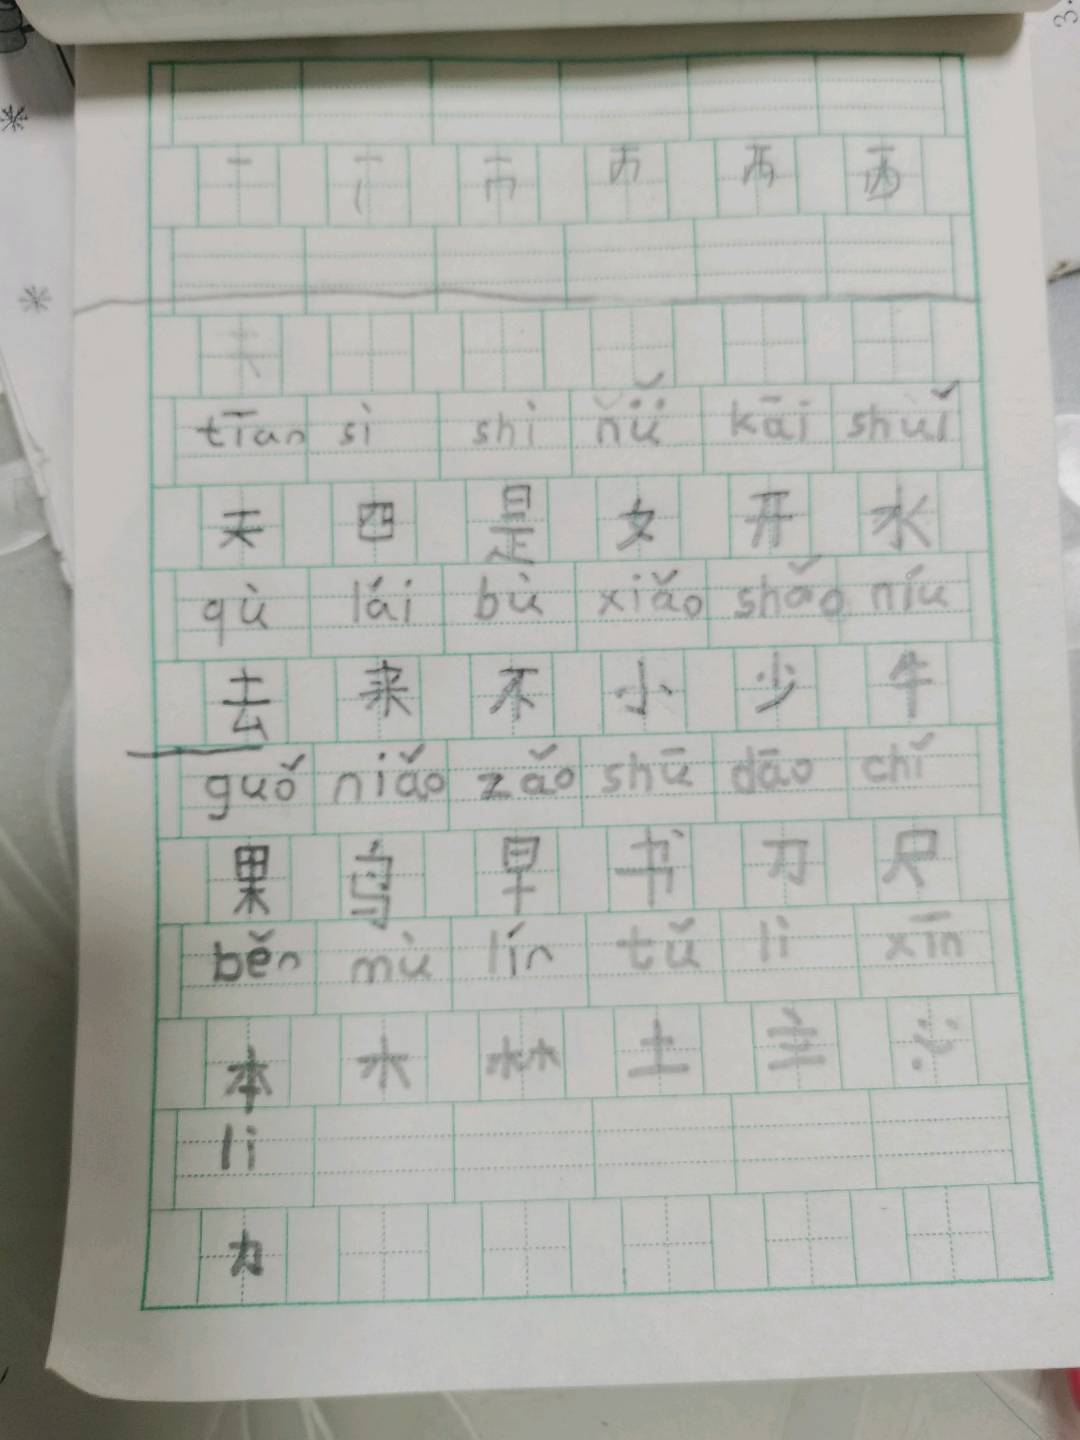 一 丆 襾 丙 西 西
天
tīan sì shi nǚ kāi shuǐ
天 四 是 女 开 水
qù lái bù xiǎo shǎo níu
去 来 不 小 少 牛
guǒ niǎo zǎo shū dāo chǐ
果 鸟 早 书 刀 尺
běn mù lín tǔ li xīn
本 木 林 土 主 心
li
力